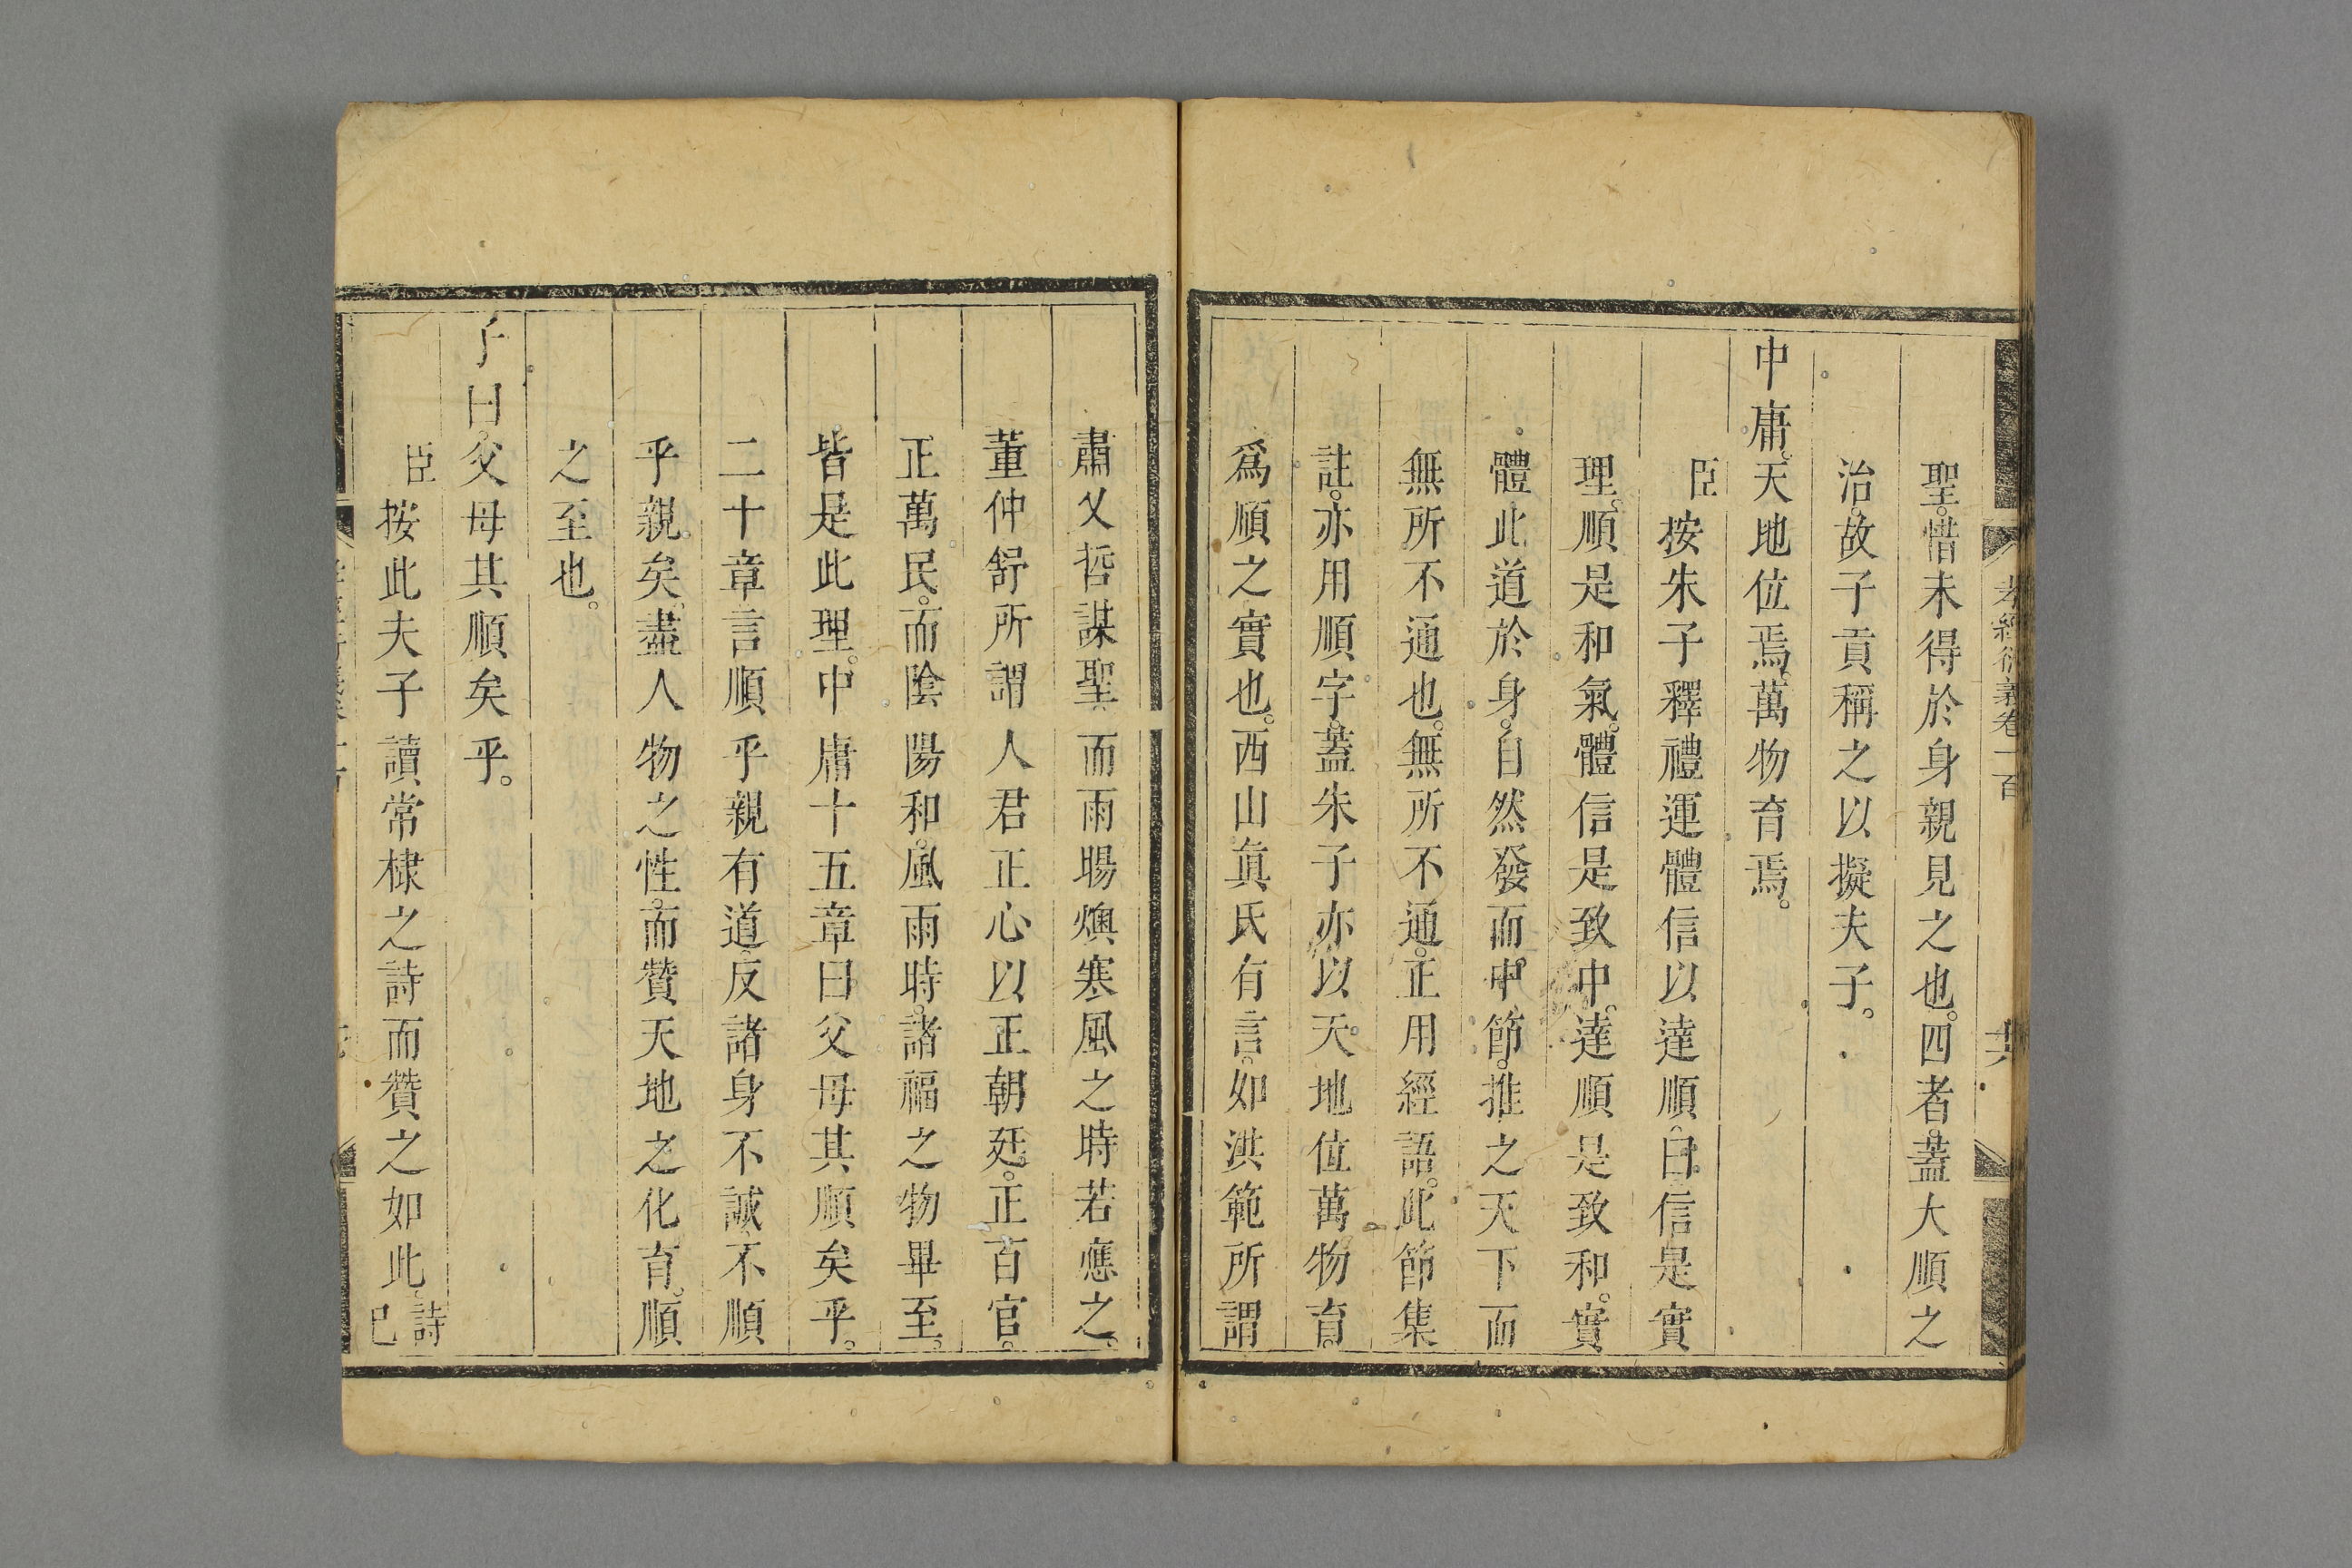 孝經衍義卷一百
聖。惜未得於身親見之也。四者。蓋大順之
治。故子貢稱之以擬夫子。
中庸。天地位焉。萬物育焉。
臣按朱子釋禮運體信以達順。曰。信是實
理。順是和氣。體信是致中。達順是致和。實
體此道於身。自然發而中節。推之天下而
無所不通也。無所不通。正用經語。此節集
註。亦用順字。蓋朱子亦以天地位萬物育。
爲順之實也。西山眞氏有言。如洪範所謂
肅乂哲謀聖而雨暘燠寒風之時若應之。
董仲舒所謂人君正心以正朝廷。正百官。
正萬民。而陰陽和。風雨時。諸福之物畢至。
皆是此理。中庸十五章曰父母其順矣乎。
二十章言順乎親有道。反諸身不誠。不順
乎親矣。盡人物之性。而贊天地之化育。順
之至也。
子曰。父母其順矣乎。
臣按此夫子讀常棣之詩而贊之如此。詩
已